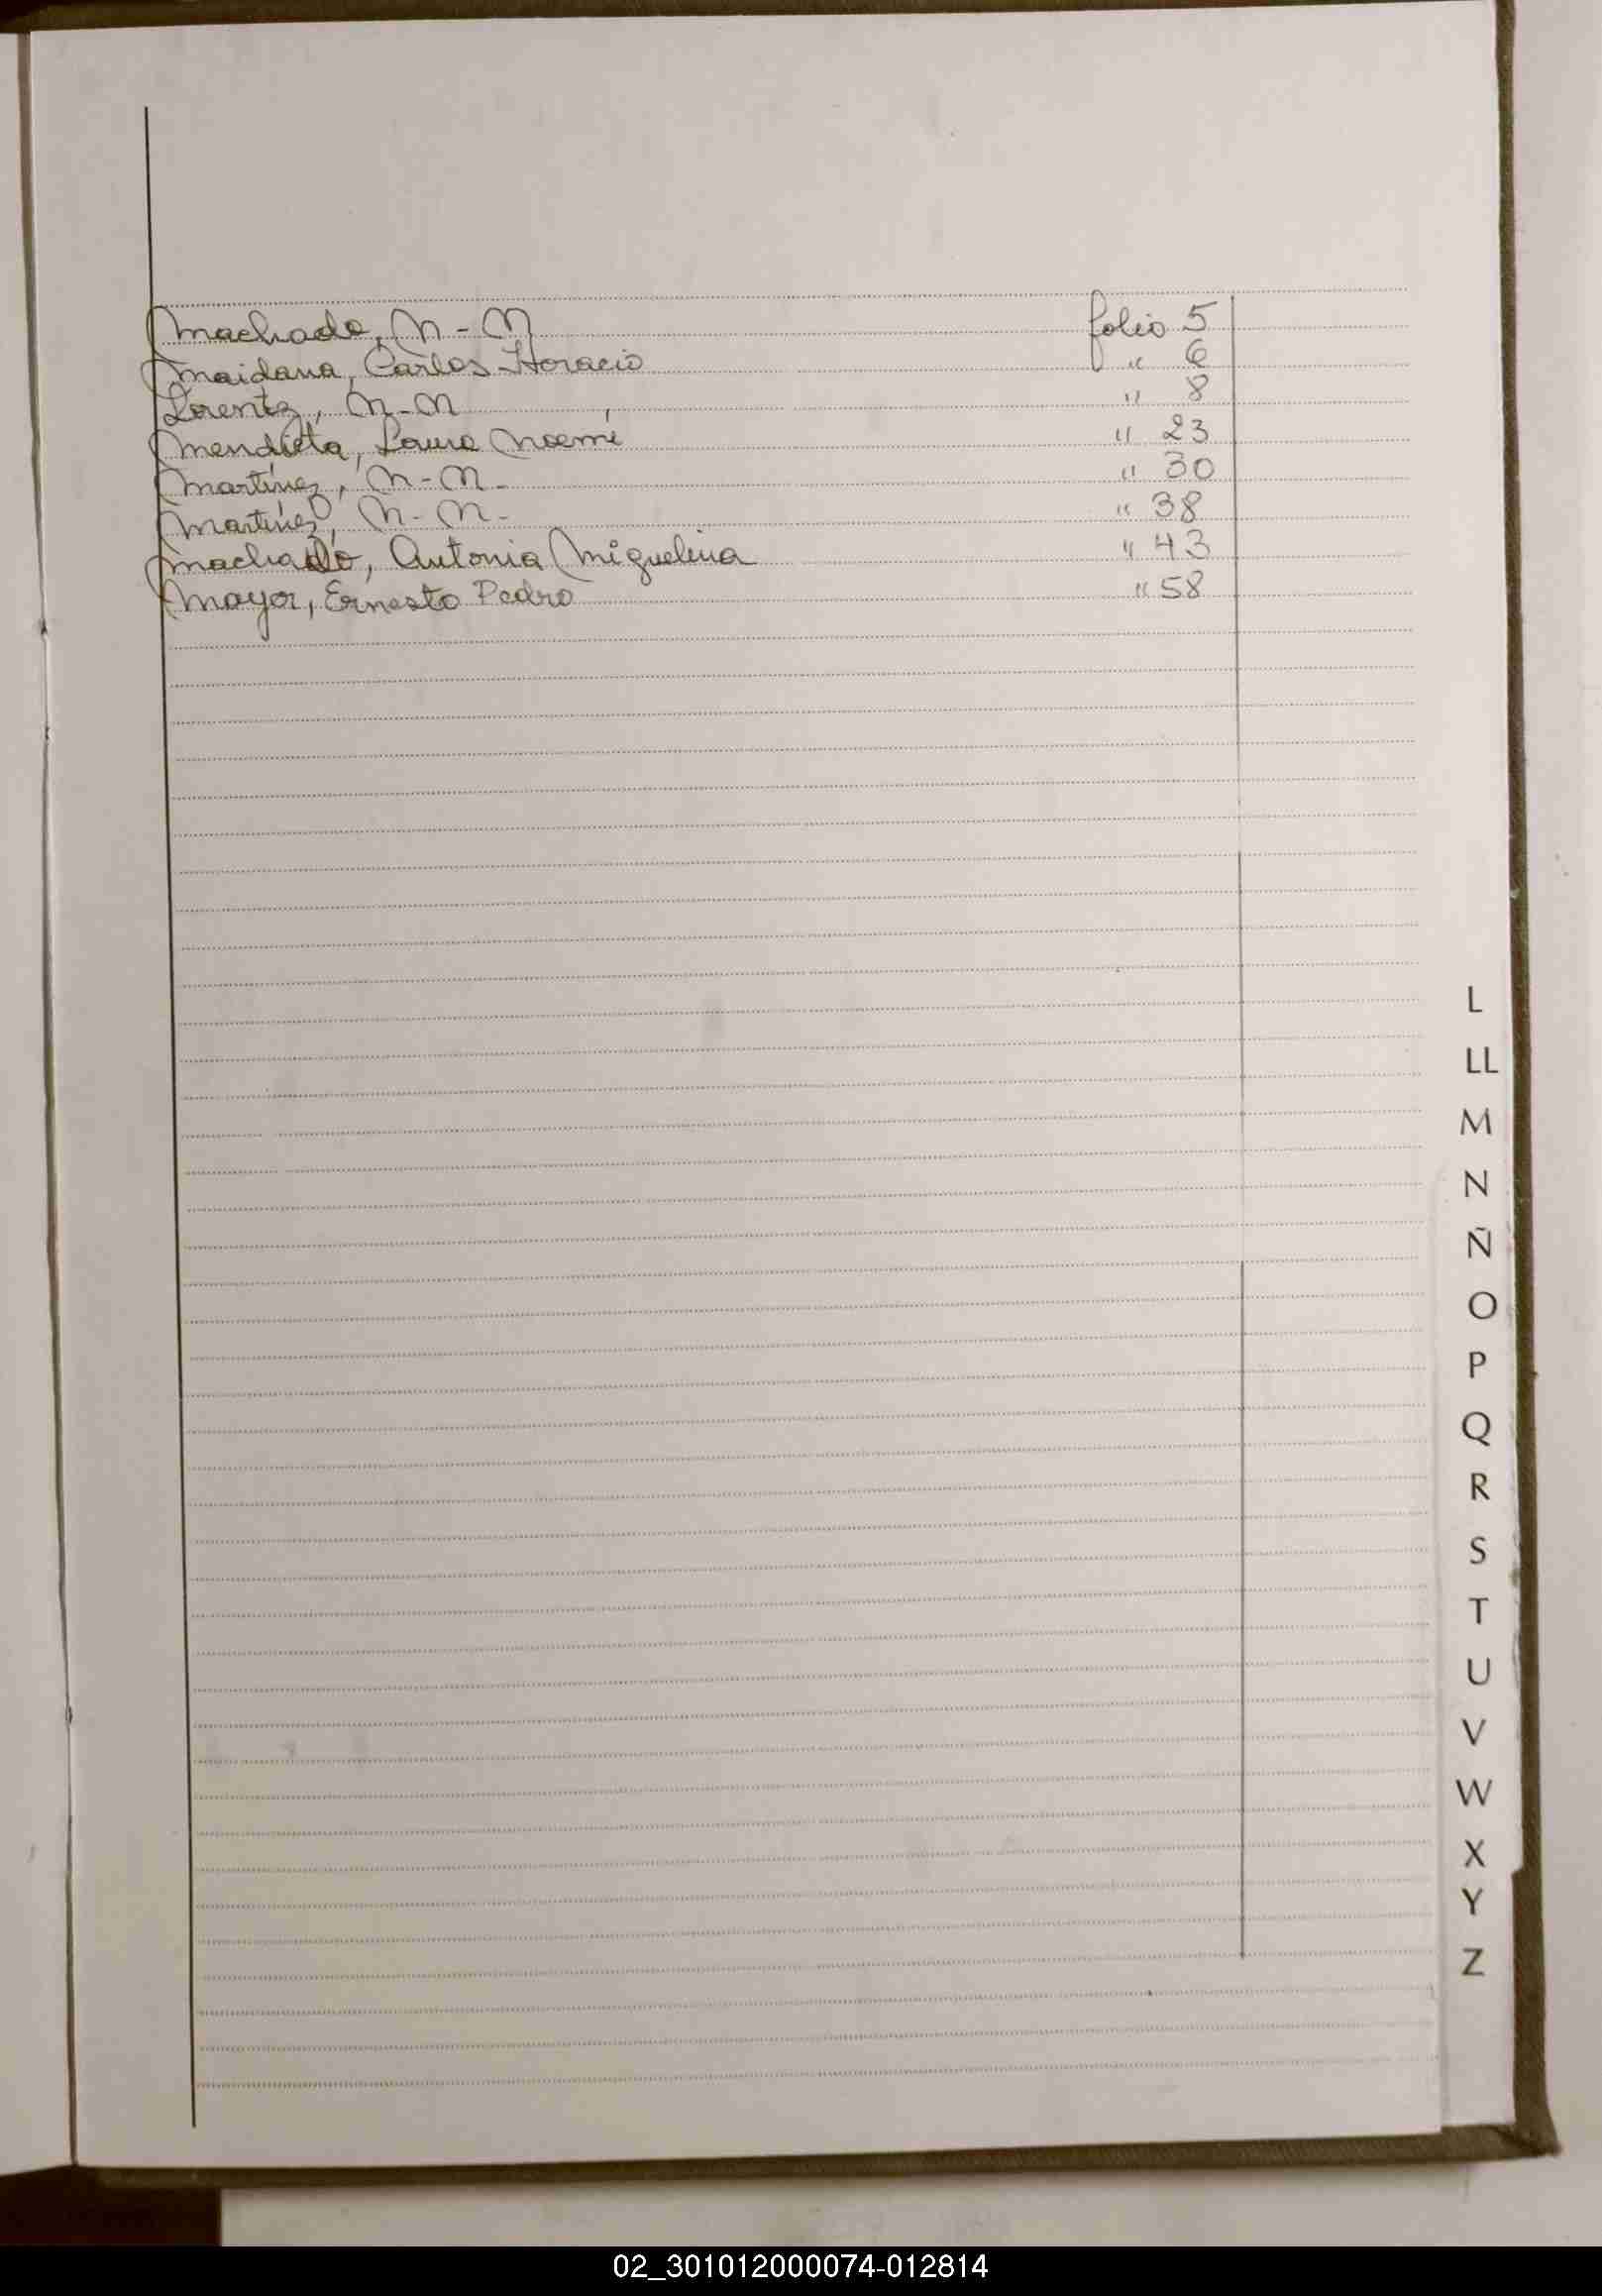 Machado, N-N folio 5
Maidana, Carlos Horacio " 6
Lorentz, N-N " 8
Mendieta, Laura Noemí " 23
Martínez, N-N- " 30
Martínez, N-N- " 38
Machado, Antonia Miguelina " 43
Mayor, Ernesto Pedro " 58
L
LL
M
N
Ñ
O
P
Q
R
S
T
U
V
W
X
Y
Z
02_301012000074-012814